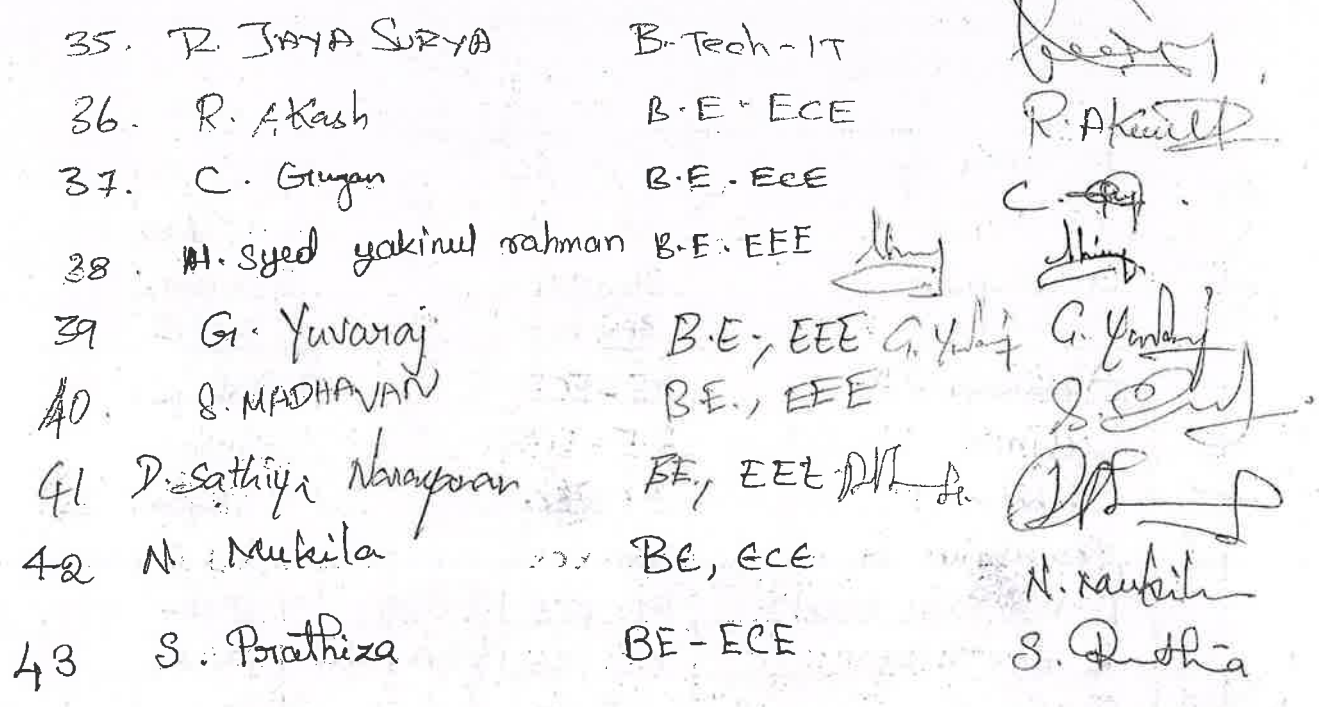 35. R. JAYA SURYA B.Tech-IT
36. R. Akash B.E - ECE R. Akash
37. C. Gugan B.E. ECE C.
38. H. Syed yakinul rahman B.E. EEE
39 G. Yuvaraj B.E., EEE G. Yuvaraj G. Yuvaraj
40. S. MADHAVAN B.E., EEE S.
41 D. Sathiya Narayanan BE., EEE
42 N. Mukila BE, ECE N. Mukila
43 S. Prathiza BE - ECE S.